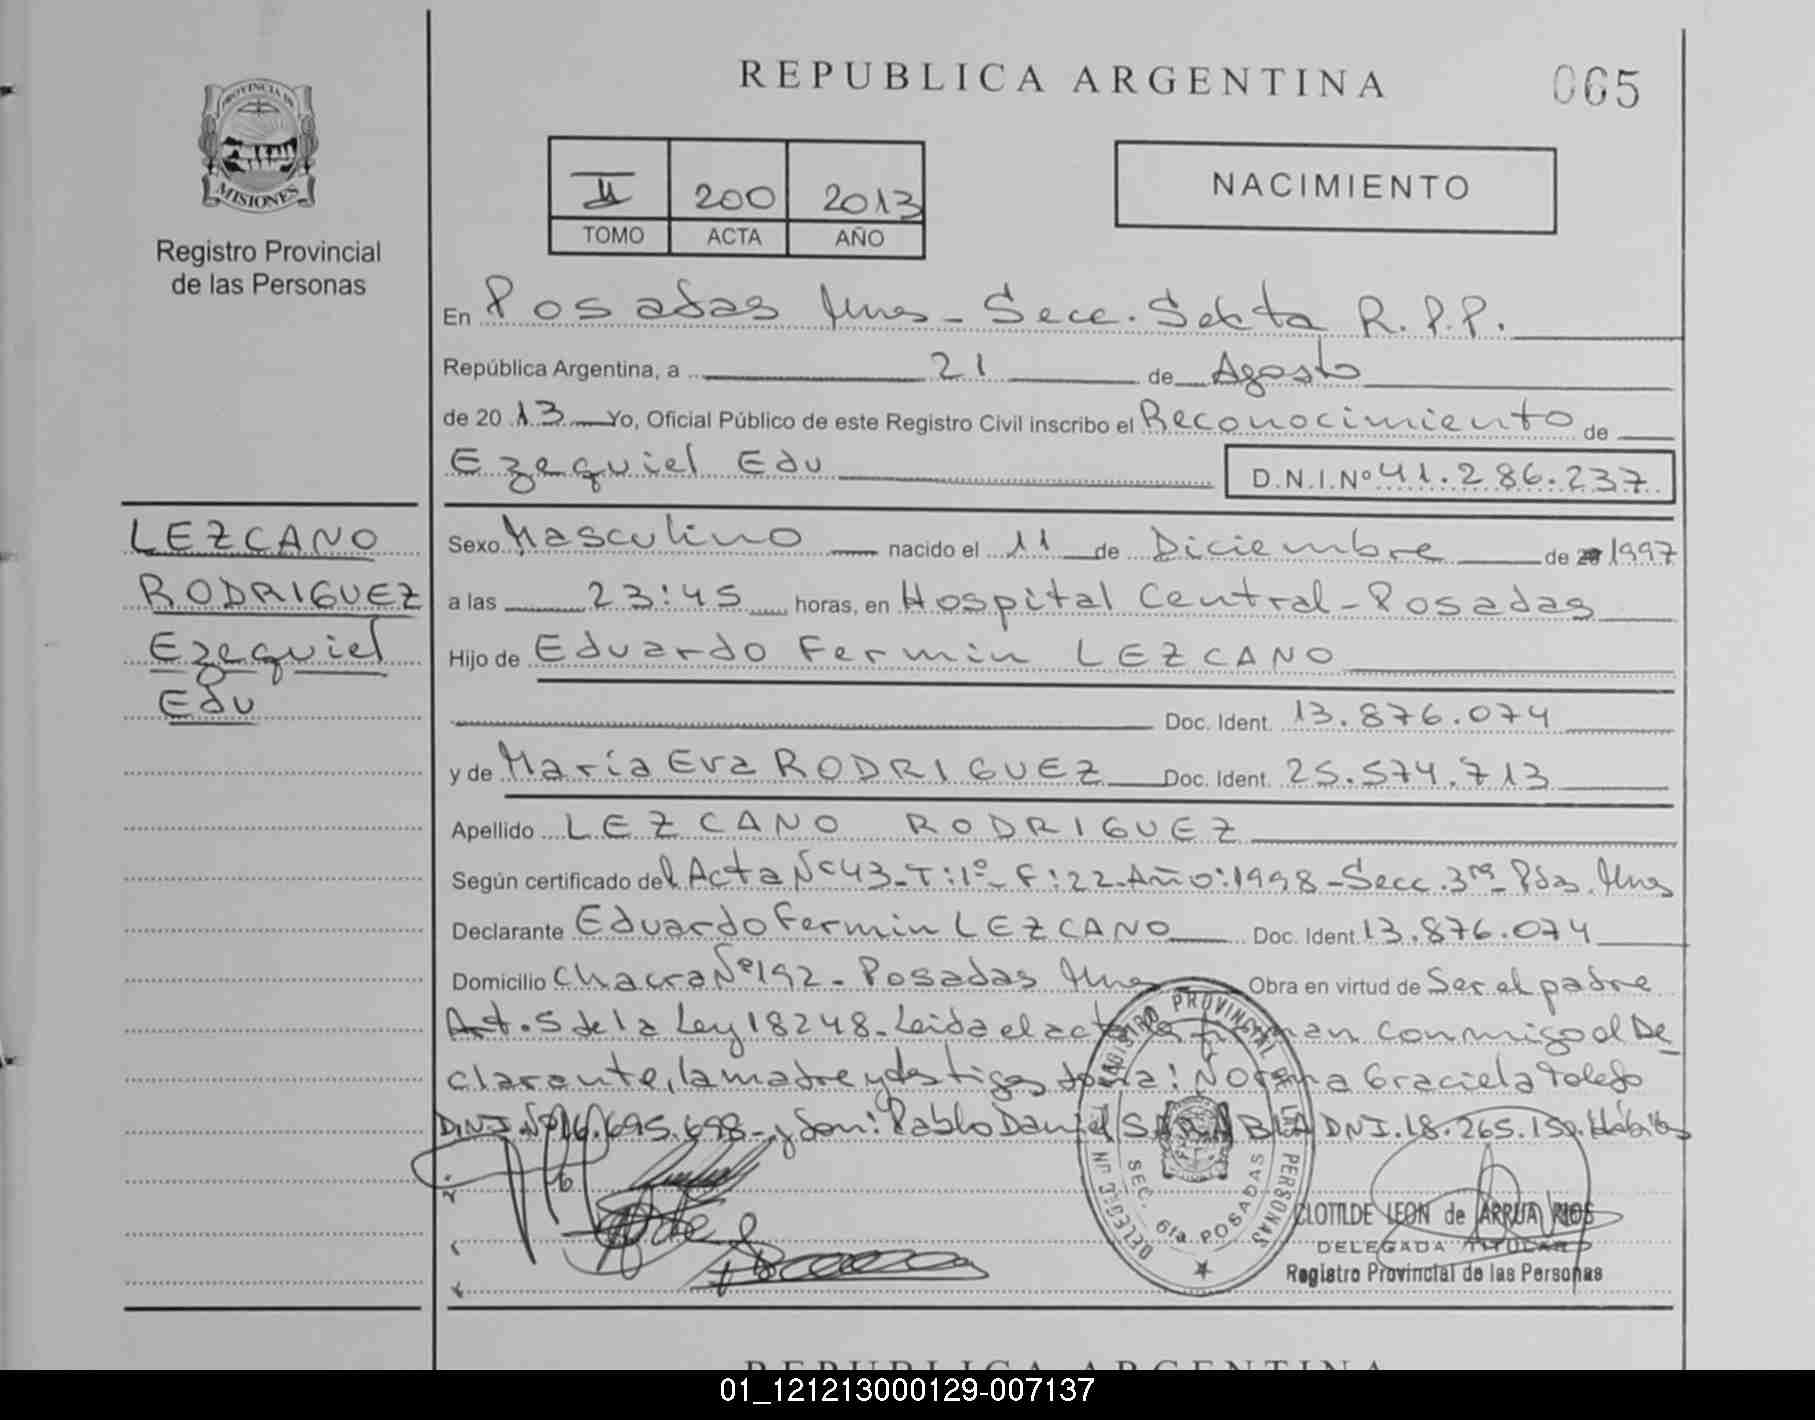 REPUBLICA ARGENTINA
065
PROVINCIA DE
MISIONES
Registro Provincial
de las Personas
II 200 2013
TOMO ACTA AÑO
NACIMIENTO
En Posadas Mnes - Secc. Sexta R.P.P.
República Argentina, a 21 de Agosto
de 2013 Yo, Oficial Público de este Registro Civil inscribo el Reconocimiento de
Ezequiel Edu D.N.I.Nº 41.286.237
LEZCANO
RODRIGUEZ
Ezequiel
Edu
Sexo Masculino nacido el 11 de Diciembre de 1997
a las 23:45 horas, en Hospital Central - Posadas
Hijo de Eduardo Fermin LEZCANO
Doc. Ident. 13.876.074
y de María Eva RODRIGUEZ Doc. Ident. 25.574.713
Apellido LEZCANO RODRIGUEZ
Según certificado del Acta Nº 43 - T: 1º - F: 22 - Año: 1998 - Secc. 3ra - Pdas. Mnes
Declarante Eduardo Fermin LEZCANO Doc. Ident. 13.876.074
Domicilio Chacra Nº 192 - Posadas Mnes Obra en virtud de Ser el padre
Art. 5 de la Ley 18248 - Leida el acta la firman conmigo el De
clarante, la madre y testigos doña: Norma Graciela Toledo
D.N.I. Nº 16.695.698 - y don: Pablo Daniel SARABIA DNI. 18.265.159. Hábiles
REGISTRO PROVINCIAL DE LAS PERSONAS
SEC. 6ta. POSADAS
CLOTILDE LEON de ARRUA RIOS
DELEGADA TITULAR
Registro Provincial de las Personas
REPUBLICA ARGENTINA
01_121213000129-007137